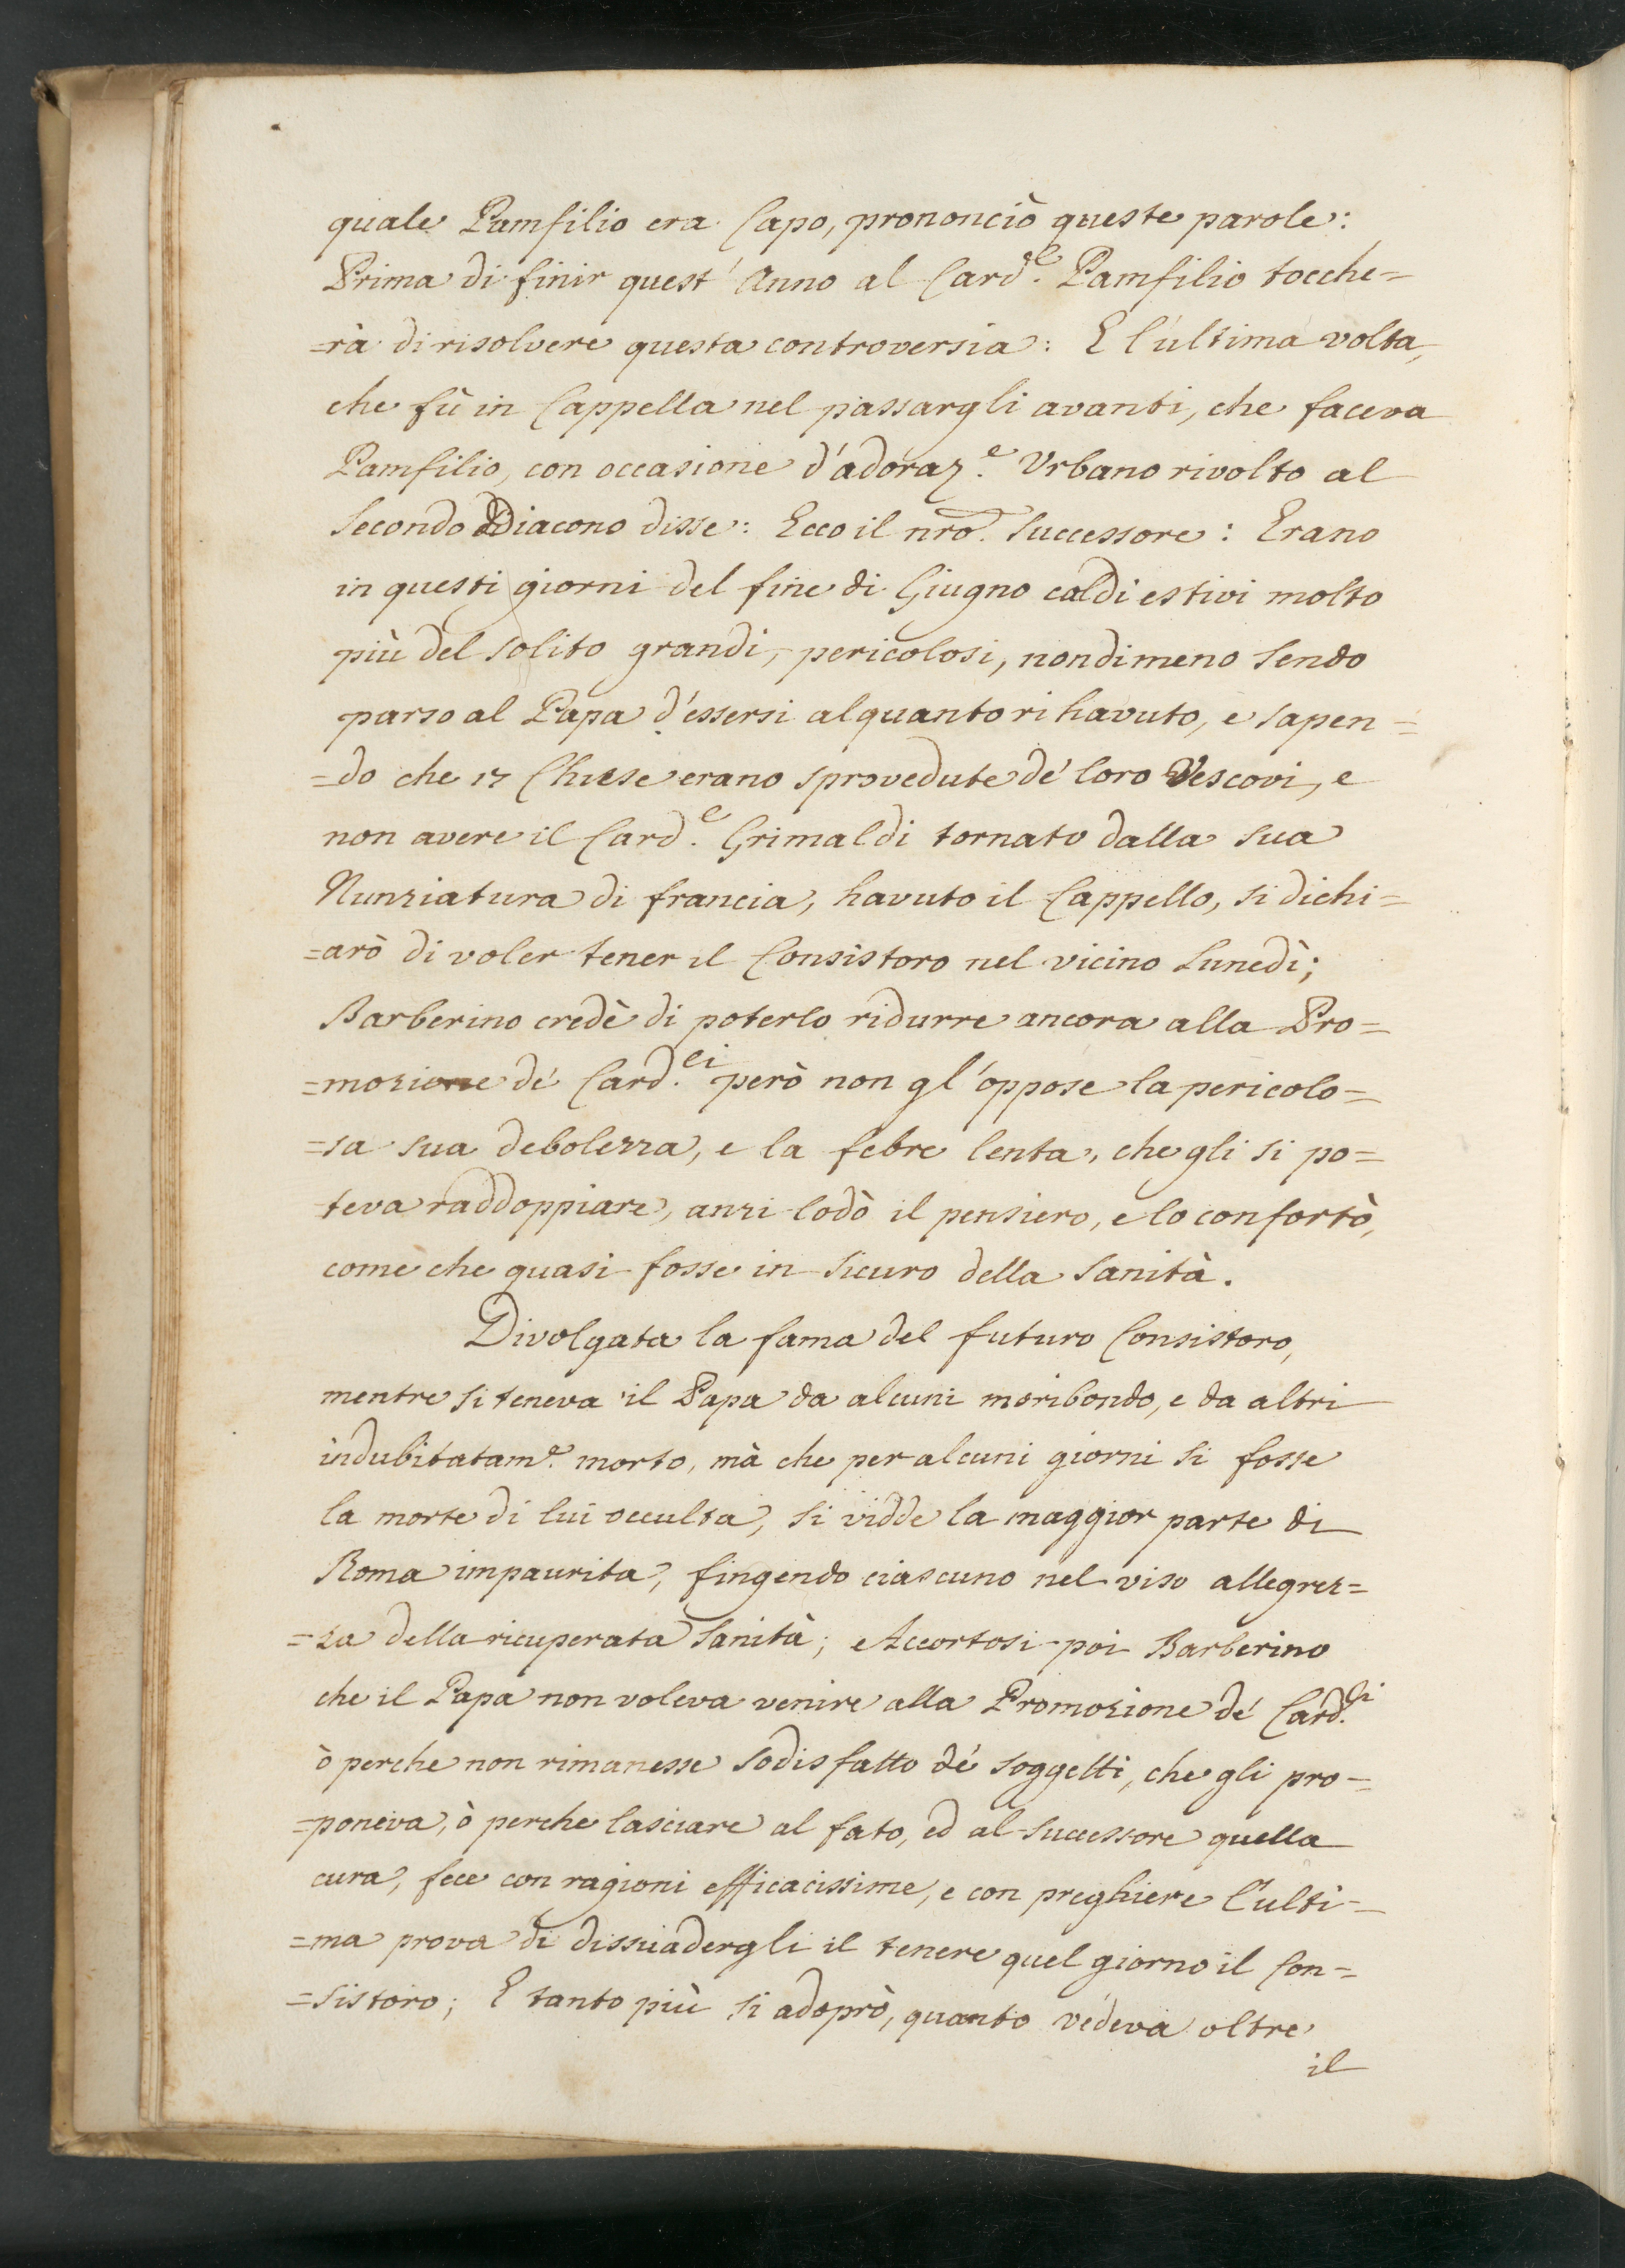 quale Pamfilio era Capo, prononciò queste parole:
Prima di finir quest'Anno al Card.e Pamfilio tocche=
=rà di risolvere questa controversia: E l'ultima volta,
che fù in Cappella nel passargli avanti, che faceva
Pamfilio, con occasione d'adoraz.e Urbano rivolto al
Secondo Diacono disse: Ecco il nro. Successore: Erano
in questi giorni del fine di Giugno caldi estivi molto
più del solito grandi, pericolosi, nondimeno sendo
parso al Papa d'essersi alquanto rihavuto, e sapen=
=do che 17 Chiese erano sprovedute de' loro Vescovi, e
non avere il Card.e Grimaldi tornato dalla sua
Nunziatura di francia, havuto il Cappello, si dichi=
=arò di voler tener il Consistoro nel vicino Lunedì;
Barberino credè di poterlo ridurre ancora alla Pro=
=mozione de' Card.ei però non gl'oppose la pericolo=
=sa sua debolezza, e la febre lenta, che gli si po=
teva raddoppiare, anzi lodò il pensiero, e lo confortò,
come che quasi fosse in sicuro della Sanità.
Divolgata la fama del futuro Consistoro,
mentre si teneva il Papa da alcuni moribondo, e da altri
indubitatam.e morto, mà che per alcuni giorni si fosse
la morte di lui occulta, si vidde la maggior parte di
Roma impaurita, fingendo ciascuno nel viso allegrez=
=za della ricuperata Sanità; Accortosi poi Barberino
che il Papa non voleva venire alla Promozione de' Card.li
ò perche non rimanesse sodisfatto de' soggetti, che gli pro=
=poneva, ò perche lasciare al fato, ed al successore quella
cura, fece con ragioni efficacissime, e con preghiere l'ulti=
=ma prova di dissuadergli il tenere quel giorno il Con=
=sistoro; E tanto più si adoprò, quanto vedeva oltre
il